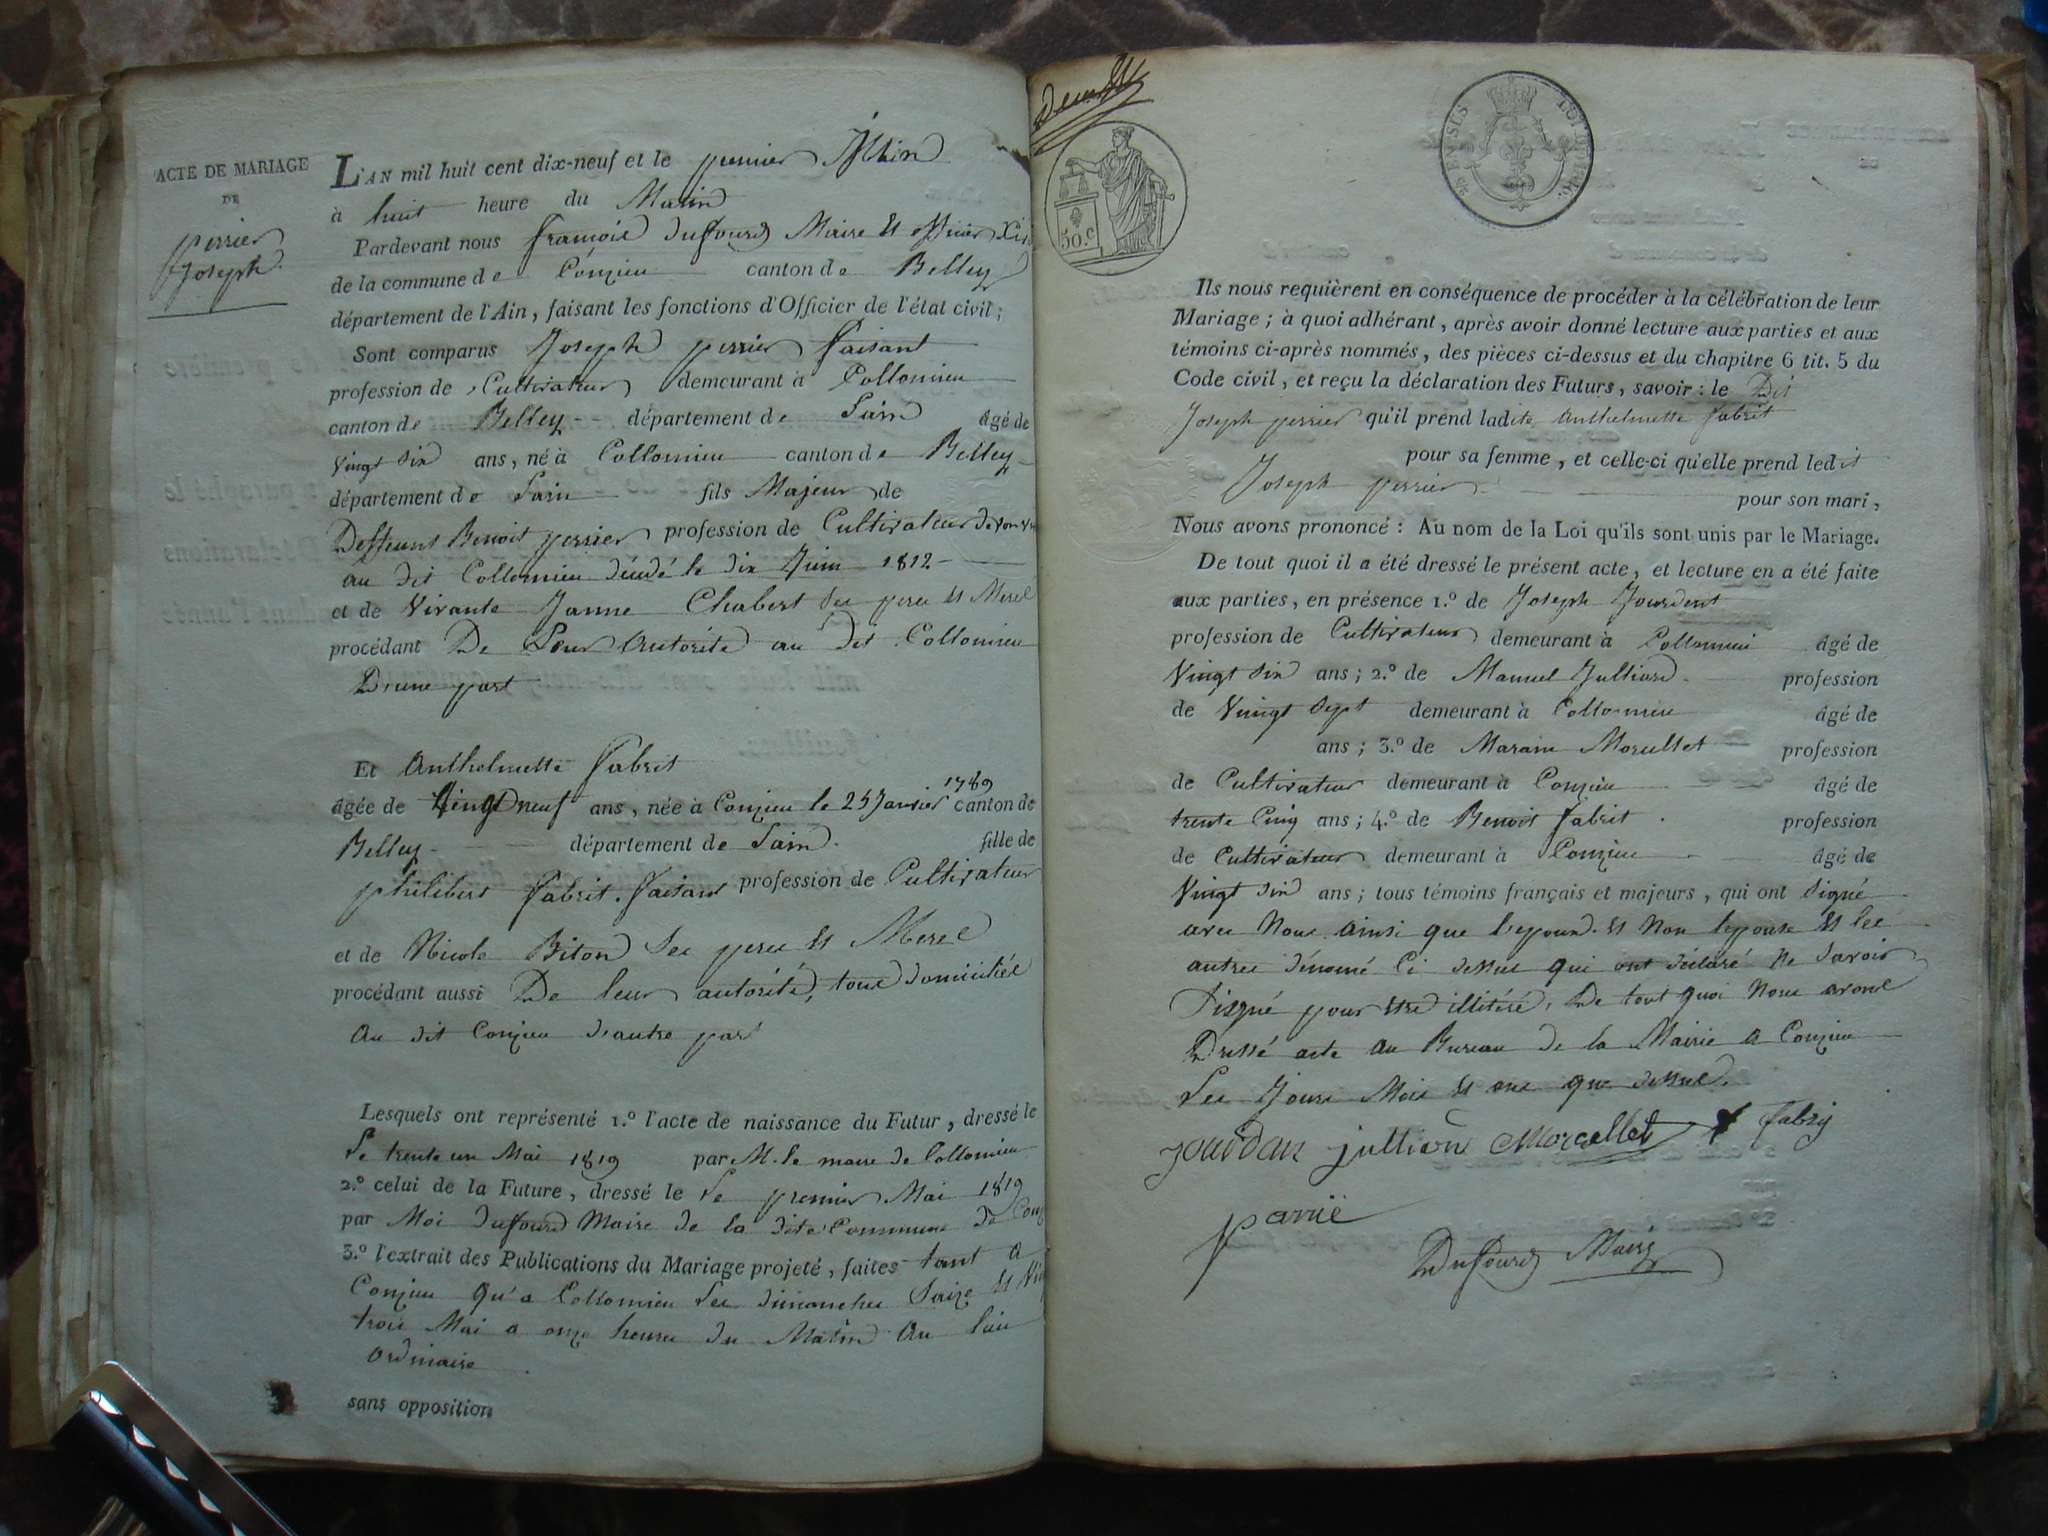 ACTE DE MARIAGE
DE
perrier
Joseph
L'AN mil huit cent dix-neuf et le premier JUin
à huit heure du Matin
Pardevant nous françois dufourd Maire et officier
de la commune de Conzieu canton de Belley
département de l'Ain, faisant les fonctions d'Officier de l'état civil;
Sont comparus Joseph perrier faisant
profession de Cultivateur demeurant à Collomieu
canton de Belley département de Lain âgé de
vingt six ans, né à Collomieu canton de Belley
département de Lain fils Majeur de
Deffeunt Benoit perrier profession de Cultivateur de son vi
au dit Collomieu décédé le dix Juin 1812
et de vivante Janne Chabert ses pere et Mere
procédant De Leur autorité au dit Collomieu
D'une part
Et Anthelmette fabrit
âgée de vingt neuf ans, née à Conzieu le 25 Janvier 1789 canton de
Belley département de Lain fille de
philibert fabrit faisant profession de Cultivateur
et de Nicole Biton ses peres et Mere
procédant aussi De leur autorité, tous domiciliés
au dit Conzieu d'autre part
Lesquels ont représenté 1.º l'acte de naissance du Futur, dressé le
Le trente un Mai 1819 par M. le maire de Collomieu
2.º celui de la Future, dressé le Le premier Mai 1819
par Moi dufourd Maire de la dite Commune de Conz
3.º l'extrait des Publications du Mariage projeté, faites tant a
Conzieu qu'a Collomieu Les dimanches Saize et vin
trois Mai a onze heures du Matin au lieu
ordinaire
sans opposition
50.c
Ils nous requièrent en conséquence de procéder à la célébration de leur
Mariage; à quoi adhérant, après avoir donné lecture aux parties et aux
témoins ci-après nommés, des pièces ci-dessus et du chapitre 6 tit. 5 du
Code civil, et reçu la déclaration des Futurs, savoir: le Dit
Joseph perrier qu'il prend ladite Anthelmette fabrit
pour sa femme, et celle-ci qu'elle prend ledit
Joseph perrier pour son mari,
Nous avons prononcé: Au nom de la Loi qu'ils sont unis par le Mariage.
De tout quoi il a été dressé le présent acte, et lecture en a été faite
aux parties, en présence 1.º de Joseph Jourdent
profession de Cultivateur demeurant à Collomieu âgé de
vingt six ans; 2.º de Manuel Julliard profession
de vingt sept demeurant à Collomieu âgé de
ans; 3.º de Marain Morullet profession
de Cultivateur demeurant à Conzieu âgé de
trente Cinq ans; 4.º de Benoit fabrit profession
de Cultivateur demeurant à Conzieu âgé de
vingt six ans; tous témoins français et majeurs, qui ont Signé
avec Nous ainsi que l'epoux et Non lepouse et les
autres dénomé Ci dessus qui ont déclaré Ne Savoir
Signé pour être illitéré, De tout quoi Nous avons
Dressé acte au Bureau de la Mairie a Conzieu
Les Jours Mois et ans que dessus.
jourdan jullian Morcellet f fabry
parrie
Dufourd Maire